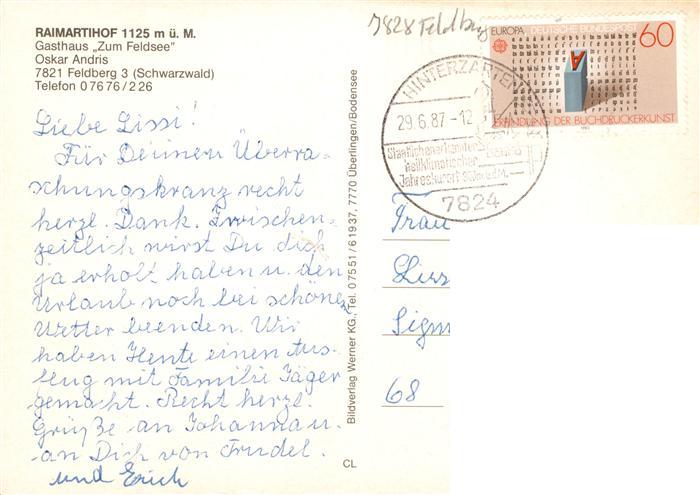 RAIMARTIHOF 1125 m ü. M.
Gasthaus „Zum Feldsee"
Oskar Andris
7821 Feldberg 3 (Schwarzwald)
Telefon 0 76 76 / 2 26
Liebe Lissi!
Für Deinen Überra-
schungskranz recht
herzl. Dank. Zwischen-
zeitlich wirst Du dich
ja erholt haben u. den
Urlaub noch bei schönem
Wetter beenden. Wir
haben Heute einen Aus-
flug mit Familie Jäger
gemacht. Recht herzl.
Grüße an Johanna u.
an Dich von Trudel.
und Erich
Bildverlag Werner KG., Tel. 0 75 51 / 6 19 37, 7770 Überlingen/Bodensee
CL
7828 Feldberg
EUROPA DEUTSCHE BUNDESPOST
60
ERFINDUNG DER BUCHDRUCKERKUNST
1983
HINTERZARTEN
29.6.87-12
Staatlichanerkannter
heilklimatischer
Jahreskurort
7824
Frau
Sigm
68